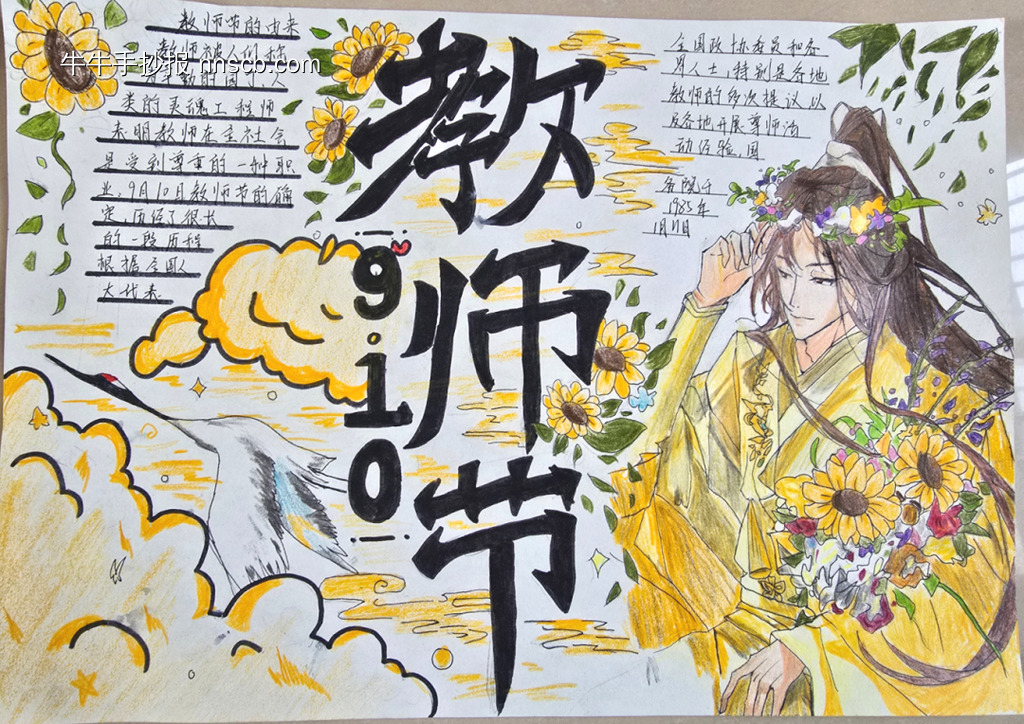 教师节的由来
教师被人们称
牛牛手抄报 nnscb.com
类的灵魂工程师
表明教师在主社会
是受到尊重的一种职
业,9月10日教师节的确
定,历经了很长
的一段历程
根据全国人
大代表
教师节
9.10
全国政协委员和各
界人士,特别是各地
教师的多次提议以
及各地开展尊师活
动经验,国
务院于
1985年
1月11日